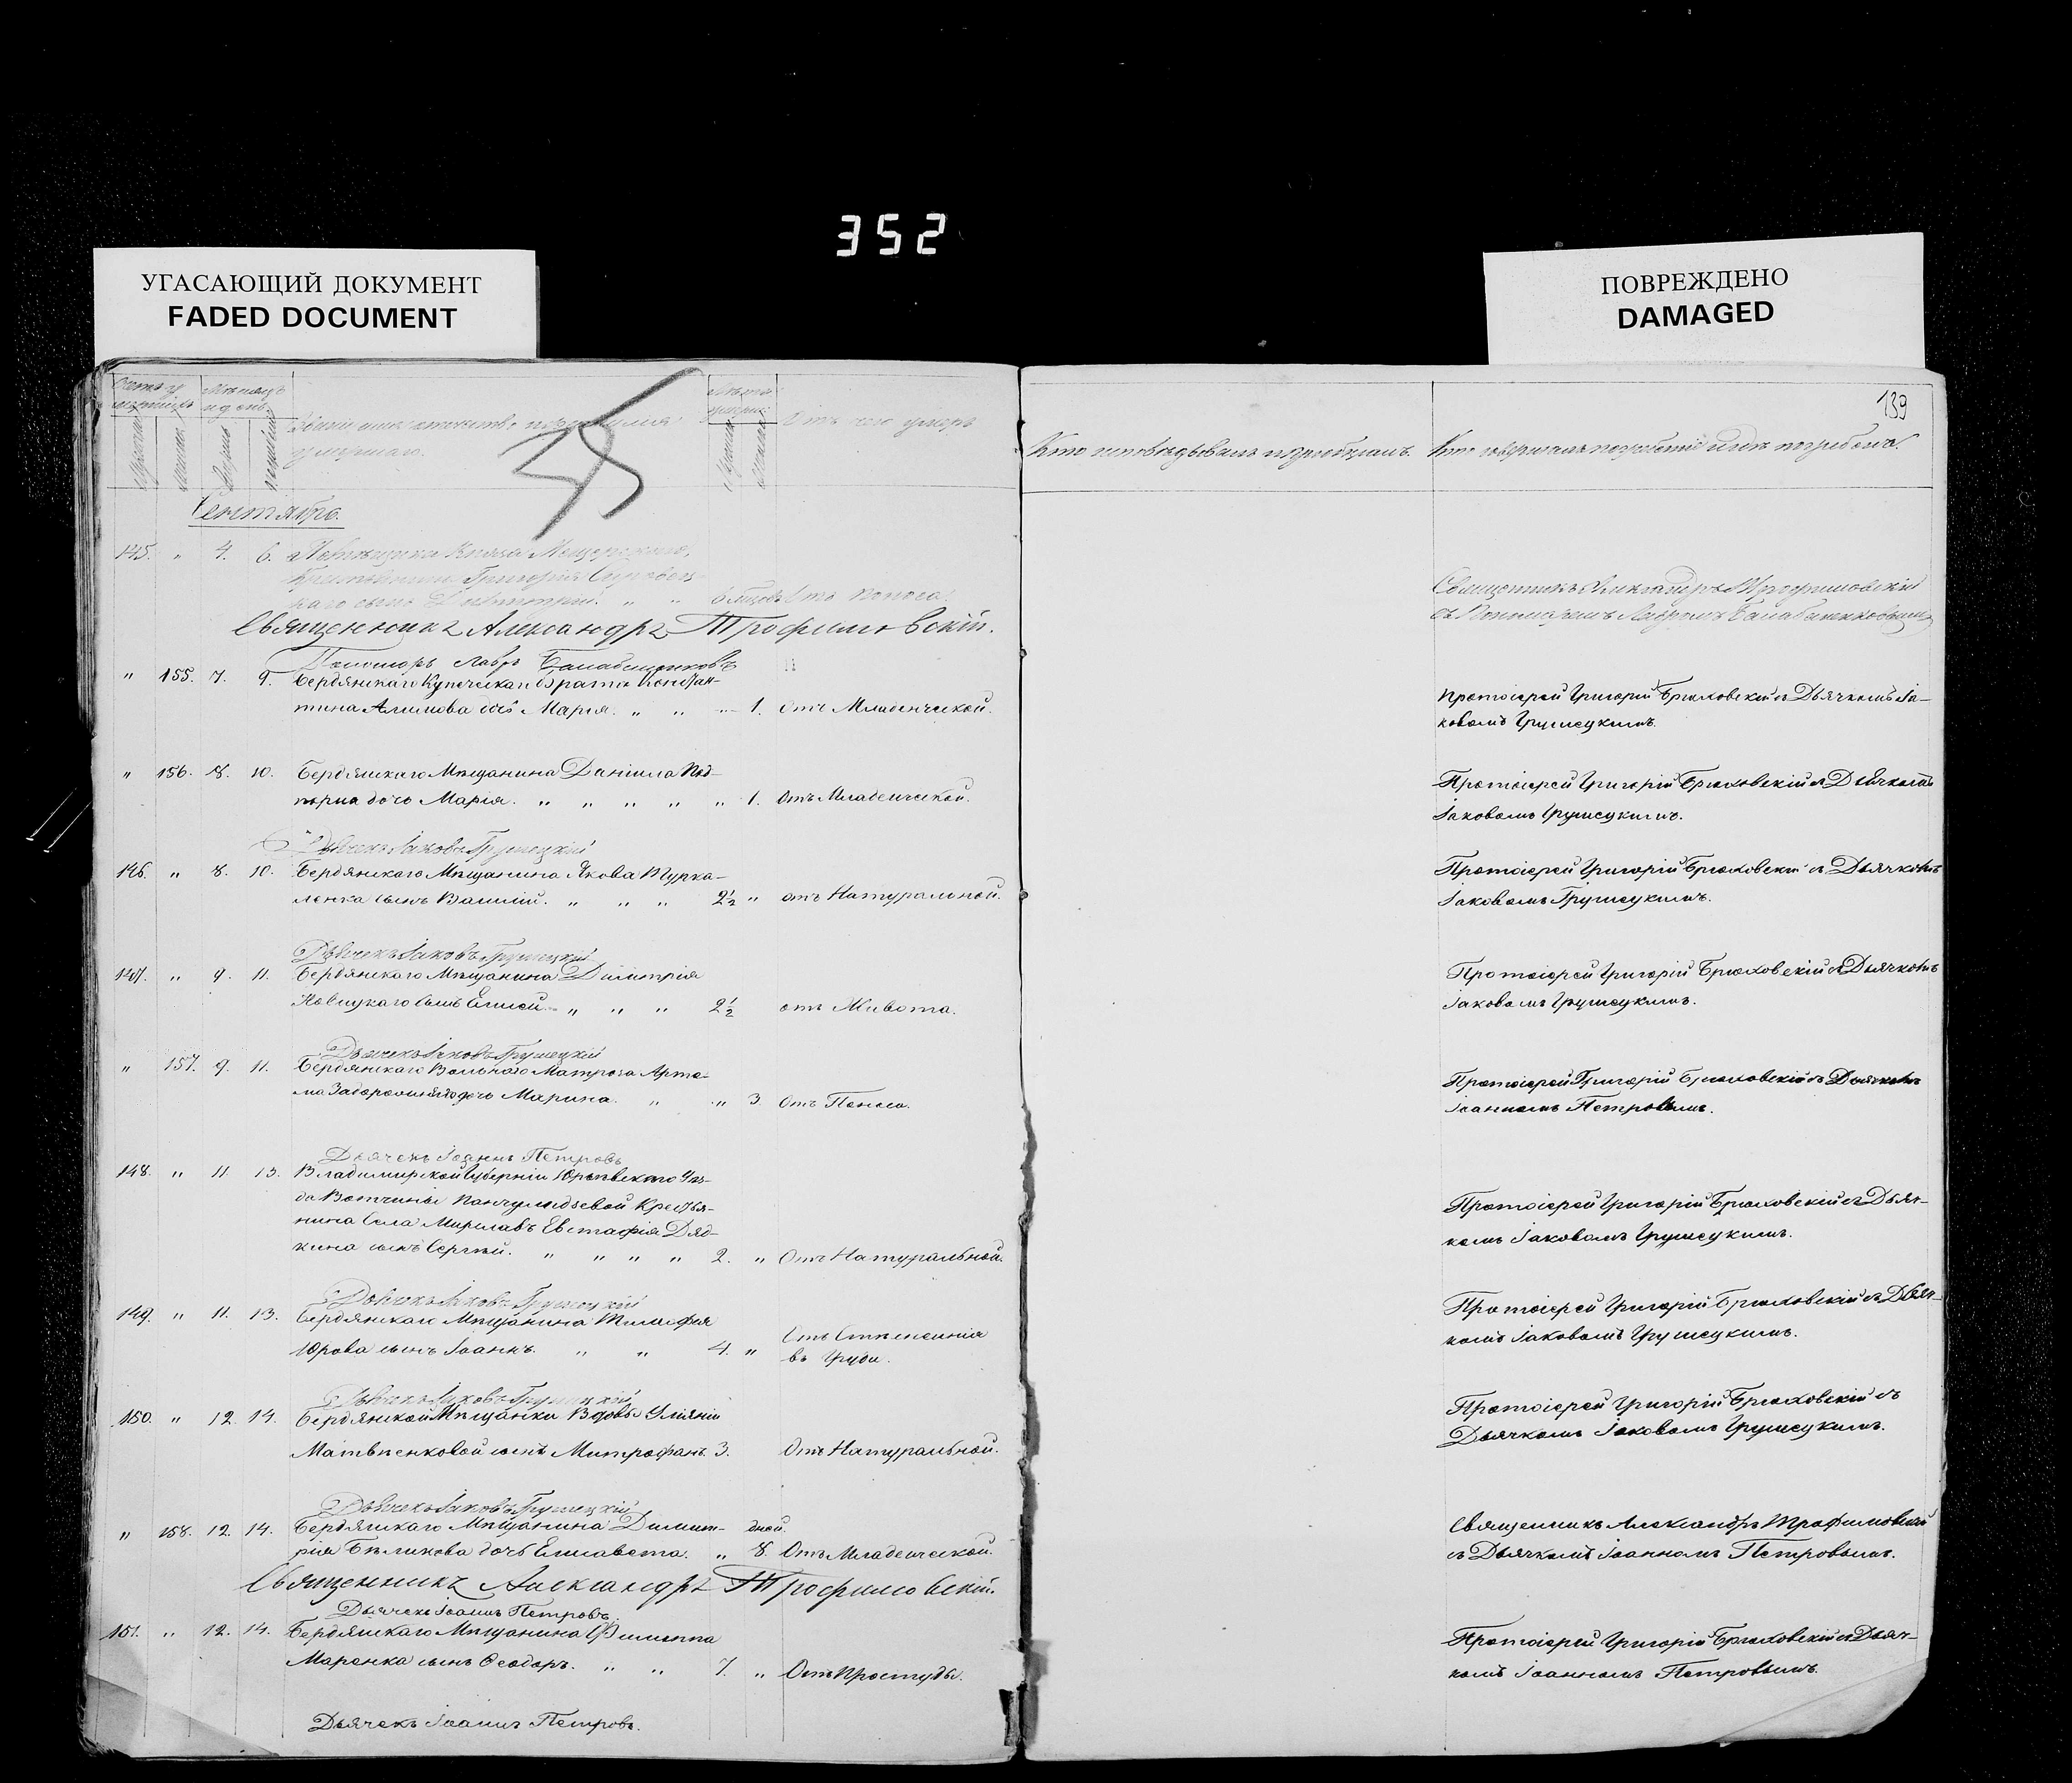 352
УГАСАЮЩИЙ ДОКУМЕНТ
FADED DOCUMENT
ПОВРЕЖДЕНО
DAMAGED
139
Мѣсяцъ
и день.
умершаго.
Отъ чего умеръ
Кто исповѣдывалъ и пріобщалъ.
Кто совершалъ погребеніе и гдѣ погребенъ.
Сентябрь.
145. " 4. 6. Помѣщика Князя Мещерскаго,
Крестьянина Григорія
сынъ Димитрій. " " 6 Отъ поноса.
Священникъ Александръ Трофимовскій
съ Пономаремъ Лавромъ
Священникъ Александръ Трофимовскій.
Пономарь Лавръ
" 155. 7. 9. Бердянскаго Купеческаго брата Констан-
тина Алимова дочь Марія. " " " 1. отъ Младенческой.
Протоіерей Григорій Брюховскій съ Дьячкомъ Іа-
ковомъ Грушецкимъ.
" 156. 8. 10. Бердянскаго Мѣщанина Даніила Под-
дочь Марія. " " " " " 1. Отъ Младенческой.
Протоіерей Григорій Брюховскій съ Дьячкомъ
Іаковомъ Грушецкимъ.
Дьячекъ Іаковъ Грушецкій
146. " 8. 10. Бердянскаго Мѣщанина Якова Турка-
ленка сынъ Василій. " " " 2½ " отъ Натуральной.
Протоіерей Григорій Брюховскій съ Дьячкомъ
Іаковомъ Грушецкимъ.
Дьячекъ Іаковъ Грушецкій
147. " 9. 11. Бердянскаго Мѣщанина Димитрія
Новицкаго сынъ Елисей. " " " 2½ отъ Живота.
Протоіерей Григорій Брюховскій съ Дьячкомъ
Іаковомъ Грушецкимъ.
Дьячекъ Іаковъ Грушецкій
" 157. 9. 11. Бердянскаго Вольнаго Матроса Арте-
ма дочь Марина. " " 3 Отъ Поноса.
Протоіерей Григорій Брюховскій съ Дьячкомъ
Іоанномъ Петровымъ.
Дьячекъ Іоаннъ Петровъ
148. " 11. 13. Владимирской Губерніи Юрьевскаго Уѣз-
да Вотчины Крестья-
нина Села Евстафія Дяд-
кина сынъ Сергѣй. " " " " 2. " Отъ Натуральной.
Протоіерей Григорій Брюховскій съ Дьяч-
комъ Іаковомъ Грушецкимъ.
Дьячекъ Іаковъ Грушецкій
149. " 11. 13. Бердянскаго Мѣщанина Тимофея
Юрова сынъ Іоаннъ. " " 4. " Отъ Стѣсненія
въ Груди.
Протоіерей Григорій Брюховскій съ Дьяч-
комъ Іаковомъ Грушецкимъ.
Дьячекъ Іаковъ Грушецкій
150. " 12. 14. Бердянской Мѣщанки Вдовы Уліяніи
Матвѣенковой сынъ Митрофанъ. 3. Отъ Натуральной.
Протоіерей Григорій Брюховскій съ
Дьячкомъ Іаковомъ Грушецкимъ.
Дьячекъ Іаковъ Грушецкій
" 158. 12. 14. Бердянскаго Мѣщанина Димит- дней.
рія Бѣликова дочь Елисавета. " 8. Отъ Младенческой.
Священникъ Александръ Трофимовскій
съ Дьячкомъ Іоанномъ Петровымъ.
Священникъ Александръ Трофимовскій.
Дьячекъ Іоаннъ Петровъ.
151. " 12. 14. Бердянскаго Мѣщанина Филиппа
Маренка сынъ Ѳеодоръ. " " 7. " Отъ Простуды.
Протоіерей Григорій Брюховскій съ Дьяч-
комъ Іоанномъ Петровымъ.
Дьячекъ Іоаннъ Петровъ.